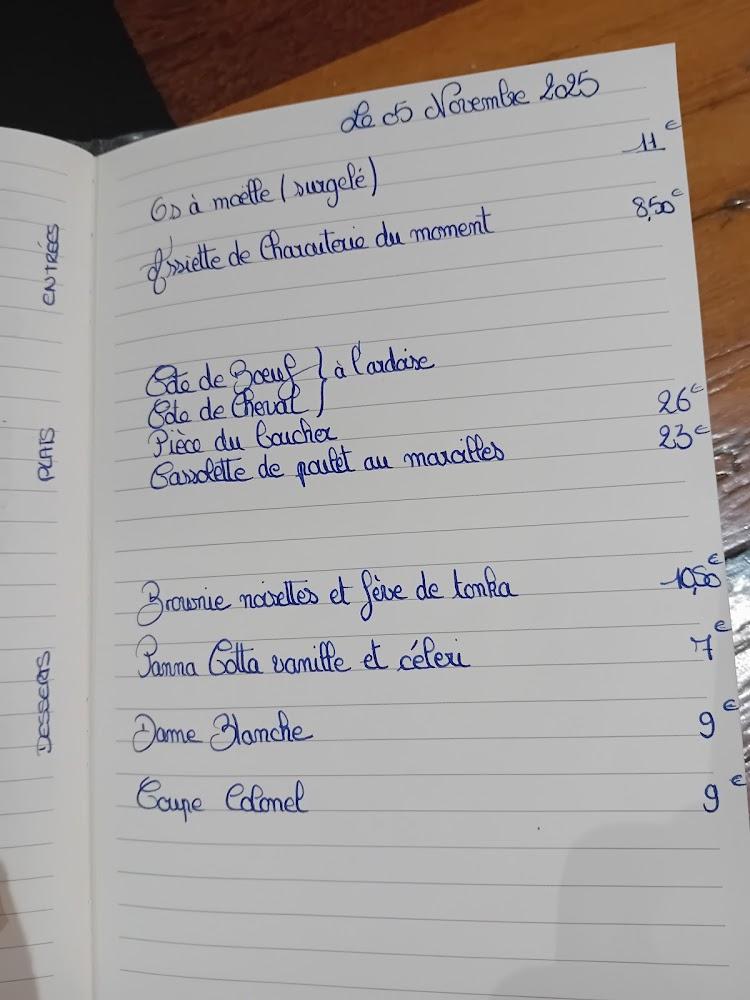 Le 05 Novembre 2025
ENTRÉES
Os à moëlle (surgelé) 11€
Assiette de Charcuterie du moment 8,50€
PLATS
Cote de Boeuf } à l'ardoise
Cote de Cheval
Pièce du boucher 26€
Cassolette de poulet au maroilles 23€
DESSERTS
Brownie noisettes et fève de tonka 10,50€
Panna Cotta vanille et céleri 7€
Dame Blanche 9€
Coupe Colonel 9€